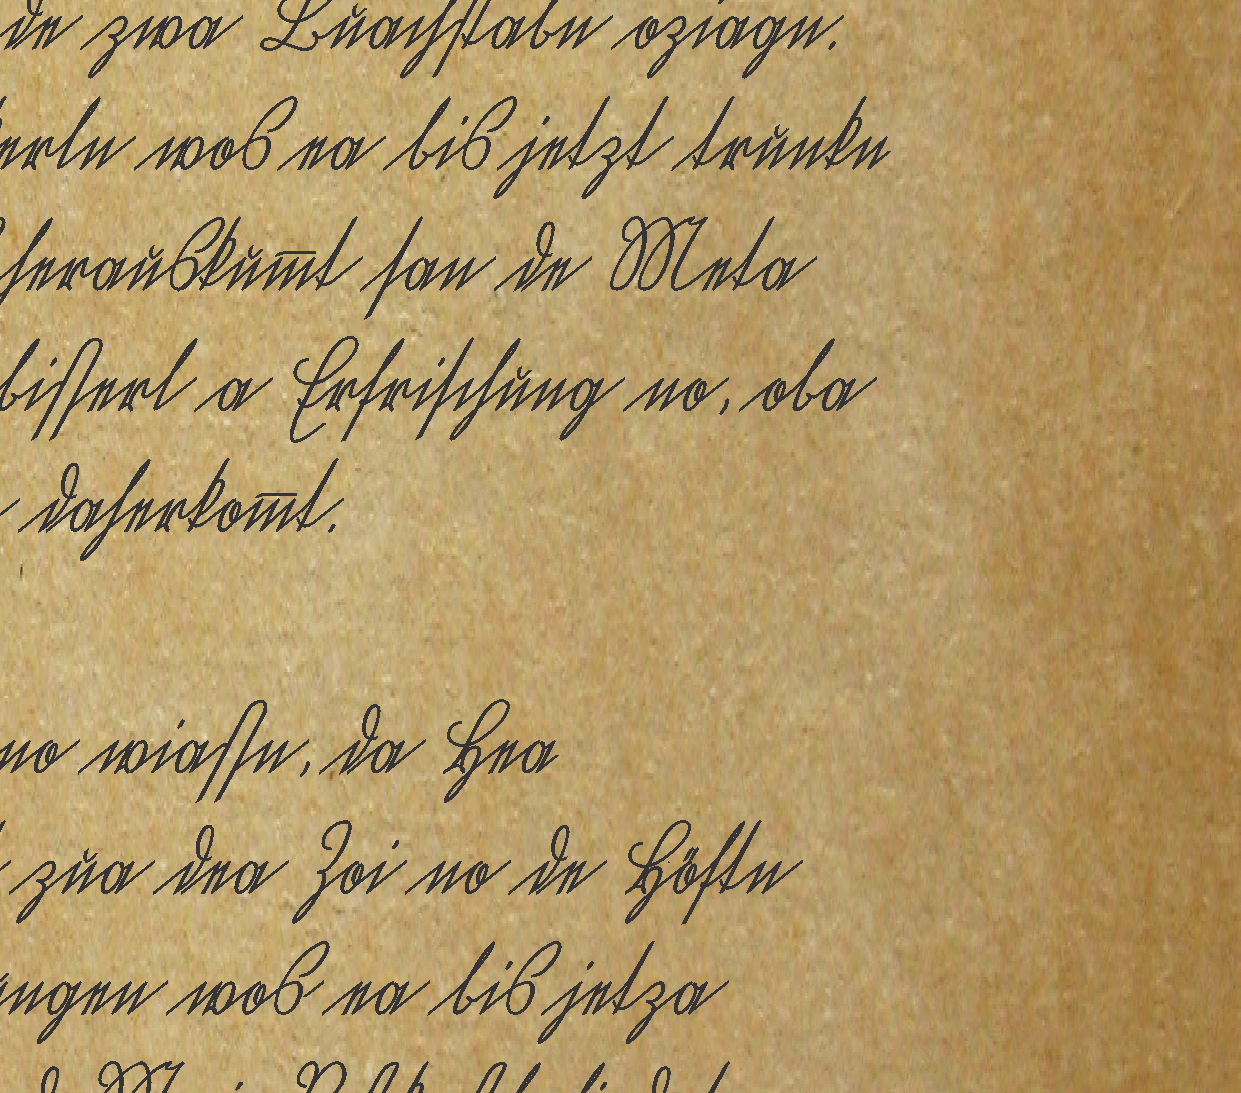 de zwa Buachstabn oziagn.
erln wos ea bis jetzt trunkn
herauskum̄t san de Meta
bisserl a Erfrischung no, oba
daherkom̄t.
no wiassn, da Hea
zua dea Zoi no de Höftn
ungen wos ea bis jetza